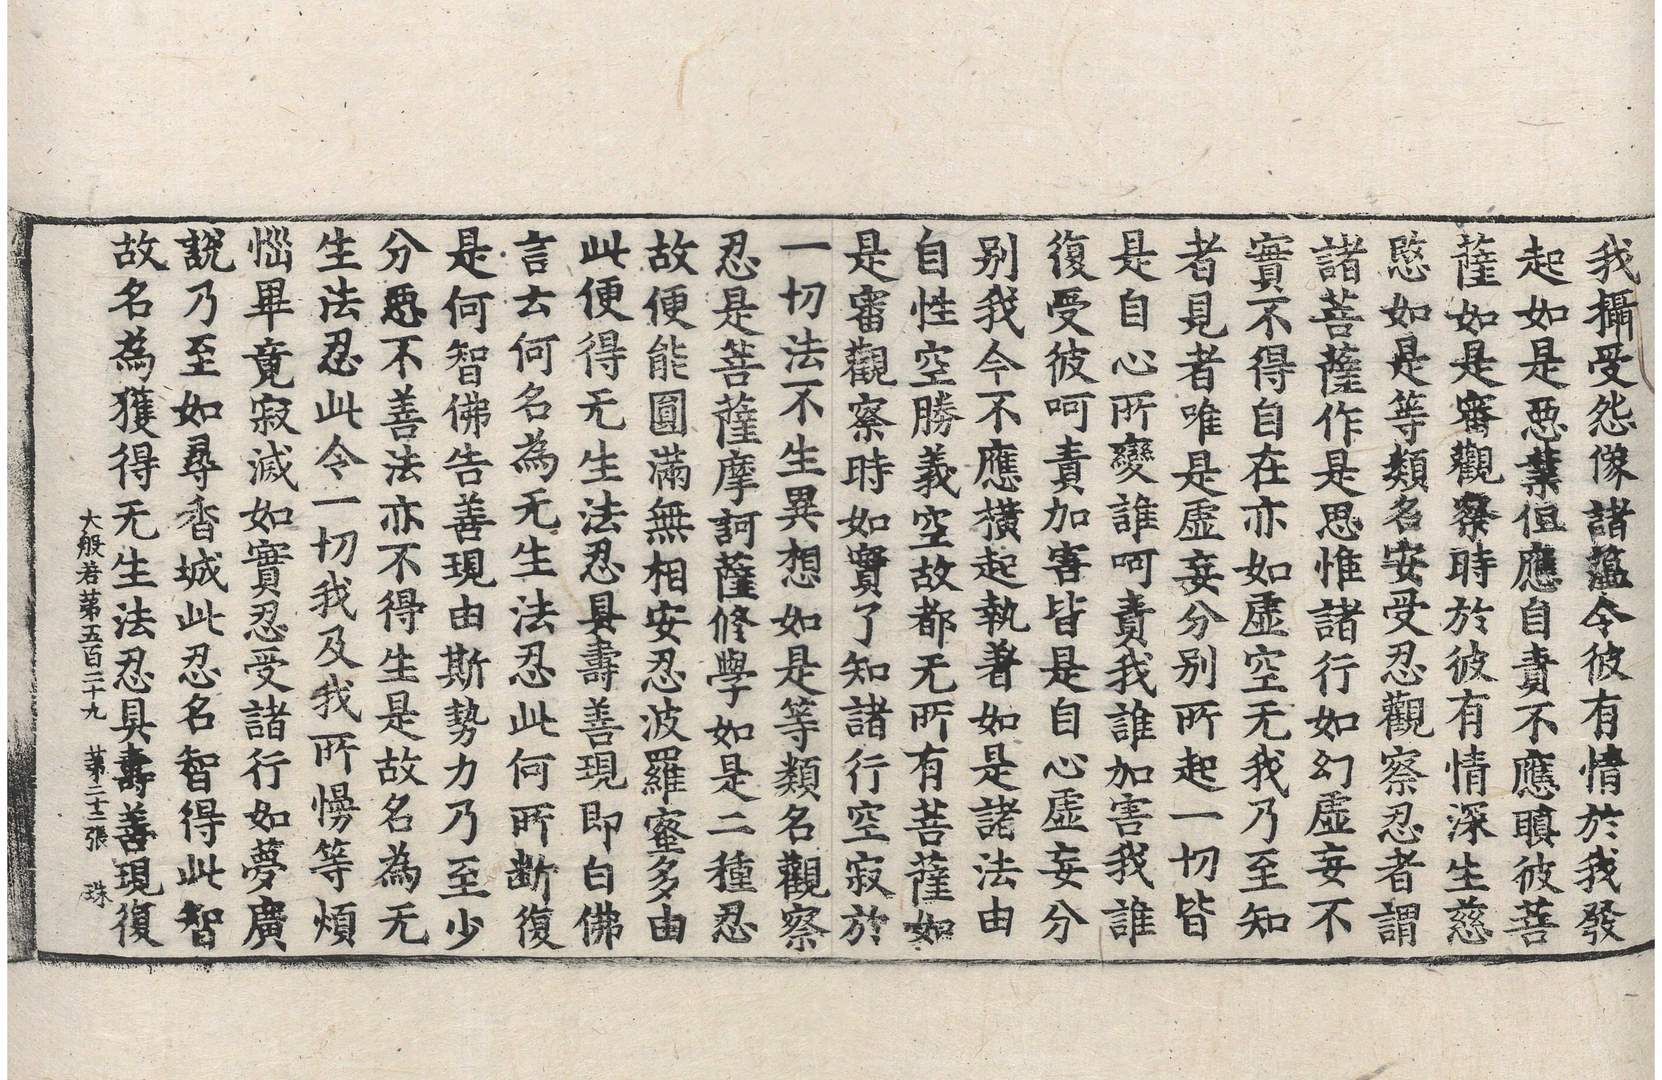 我攝受怨像諸蘊今彼有情於我發
起如是惡業但應自責不應瞋彼菩
薩如是審觀察時於彼有情深生慈
愍如是等類名安受忍觀察忍者謂
諸菩薩作是思惟諸行如幻虛妄不
實不得自在亦如虛空无我乃至知
者見者唯是虛妄分別所起一切皆
是自心所變誰呵責我誰加害我誰
復受彼呵責加害皆是自心虛妄分
别我今不應橫起執著如是諸法由
自性空勝義空故都无所有菩薩如
是審觀察時如實了知諸行空寂於
一切法不生異想如是等類名觀察
忍是菩薩摩訶薩修學如是二種忍
故便能圓滿無相安忍波羅蜜多由
此便得无生法忍具壽善現即白佛
言云何名為无生法忍此何所斷復
是何智佛告善現由斯勢力乃至少
分惡不善法亦不得生是故名為无
生法忍此令一切我及我所慢等煩
惱畢竟寂滅如實忍受諸行如夢廣
說乃至如尋香城此忍名智得此智
故名為獲得无生法忍具壽善現復
大般若第五百二十九 第二十二張 珠